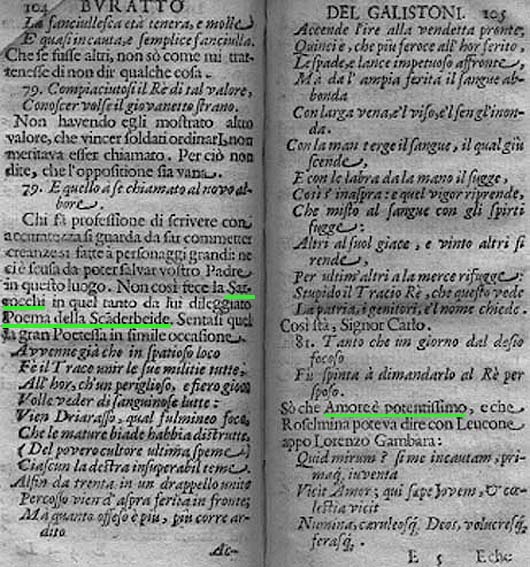 104 BVRATTO
La fanciullesca età tenera, e molle
E quasi incauta, e semplice fanciulla.
Che se fusse altri, non sò come mi trat-
tenesse di non dir qualche cosa.
79. Compiaciutosi il Rè di tal valore,
Conoscer volse il giovanetto strano.
Non havendo egli mostrato altro
valore, che vincer soldati ordinarI, non
meritava esser chiamato. Per ciò non
dite, che l'oppositione sia vana.
79. E quello a se chiamato al novo al-
bore.
Chi fà professione di scrivere con
accuratezza si guarda da far commetter
creanze si fatte à personaggi grandi: ne
ci è scusa da poter salvar vostro Padre
in questo luogo. Non così fece la Sar-
rocchi in quel tanto da lui dileggiato
Poema della Scãderbeide. Sentasi quel
la gran Poetessa in simile occasione.
Avvenne già che in spatioso loco
Fè il Trace unir le sue militie tutte;
All'hor, ch'un periglioso, e fiero gioco
Volle veder di sanguinose lutte:
Vien Driarasso, qual fulmineo foco,
Che le mature biade habbia distrutte,
(Del povero cultore ultima speme)
Ciascun la destra insuperabil teme.
Alfin da trenta, in un drappello unito
Percosso vien d'aspra ferita in fronte;
Ma quanto offeso è più, più corre ar-
dito
Ac-
DEL GALISTONI. 105
Accende l'ire alla vendetta pronte,
Quinci è, che più feroce all'hor ferito
Le spade, e lance impetuoso affronte,
Mà da l'ampia ferita il sangue ab-
bonda
Con larga vena, e'l viso, e'l sen gl'inon-
da.
Con la man terge il sangue, il qual giù
scende,
E con le labra da la mano il sugge,
Così s'inaspra: e quel vigor riprende,
Che misto al sangue con gli spirti
fugge:
Altri al suol giace, e vinto altri si
rende,
Per ultim'altri a la merce rifugge:
Stupido il Tracio Rè, che questo vede
La patria, i genitori, e'l nome chiede.
Così stà, Signor Carlo.
81. Tanto che un giorno dal desio
focoso
Fù spinta à dimandarlo al Rè per
sposo.
Sò che Amore è potentissimo, e che
Roselmina poteva dire con Leucone
appo Lorenzo Gambara:
Quid mirum? si me incautam, pri-
maq, iuventa
Vicit Amor; qui sæpe Jovem, & cœ-
lestia vicit
Numina, cæruleosq, Deos, volucresq,
ferasq.
E 5 E che